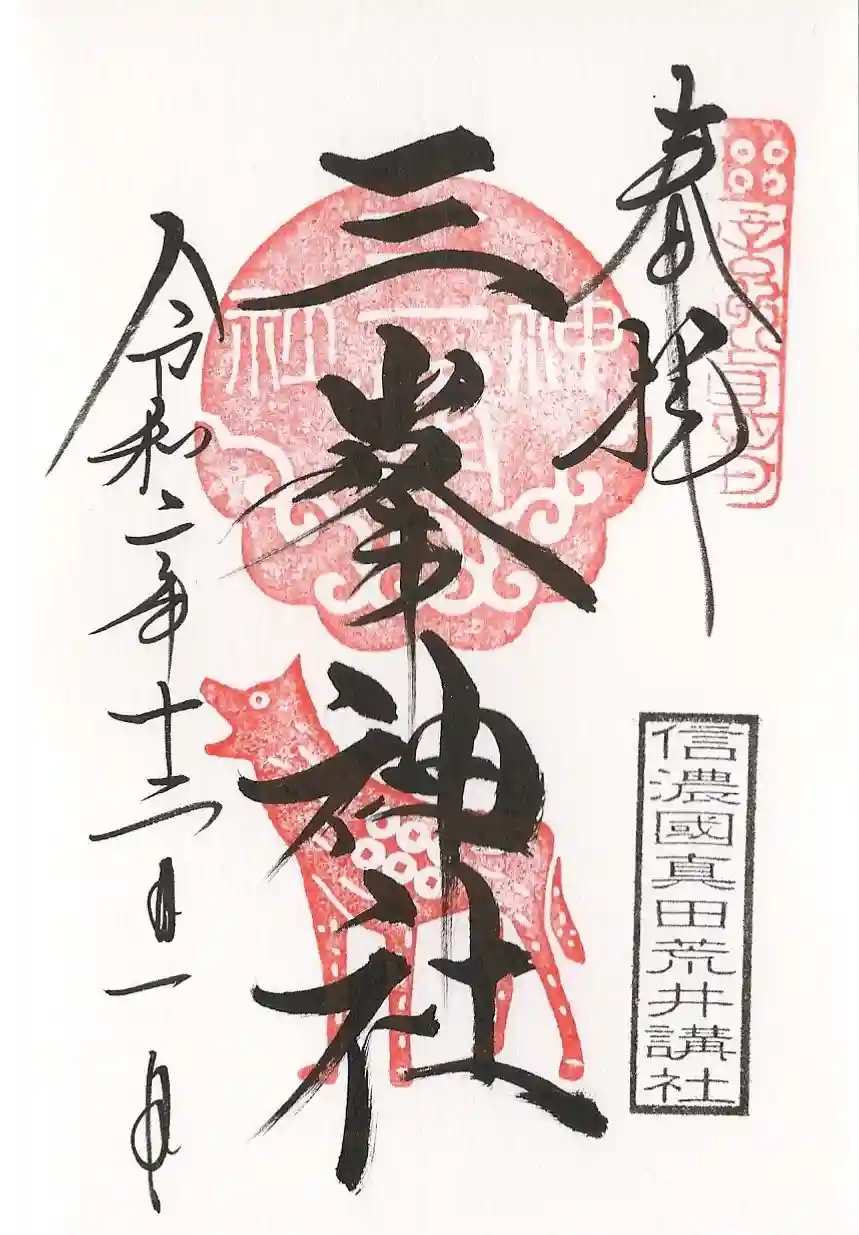 奉拝
三峯神社
信濃國真田荒井講社
令和二年十二月一日